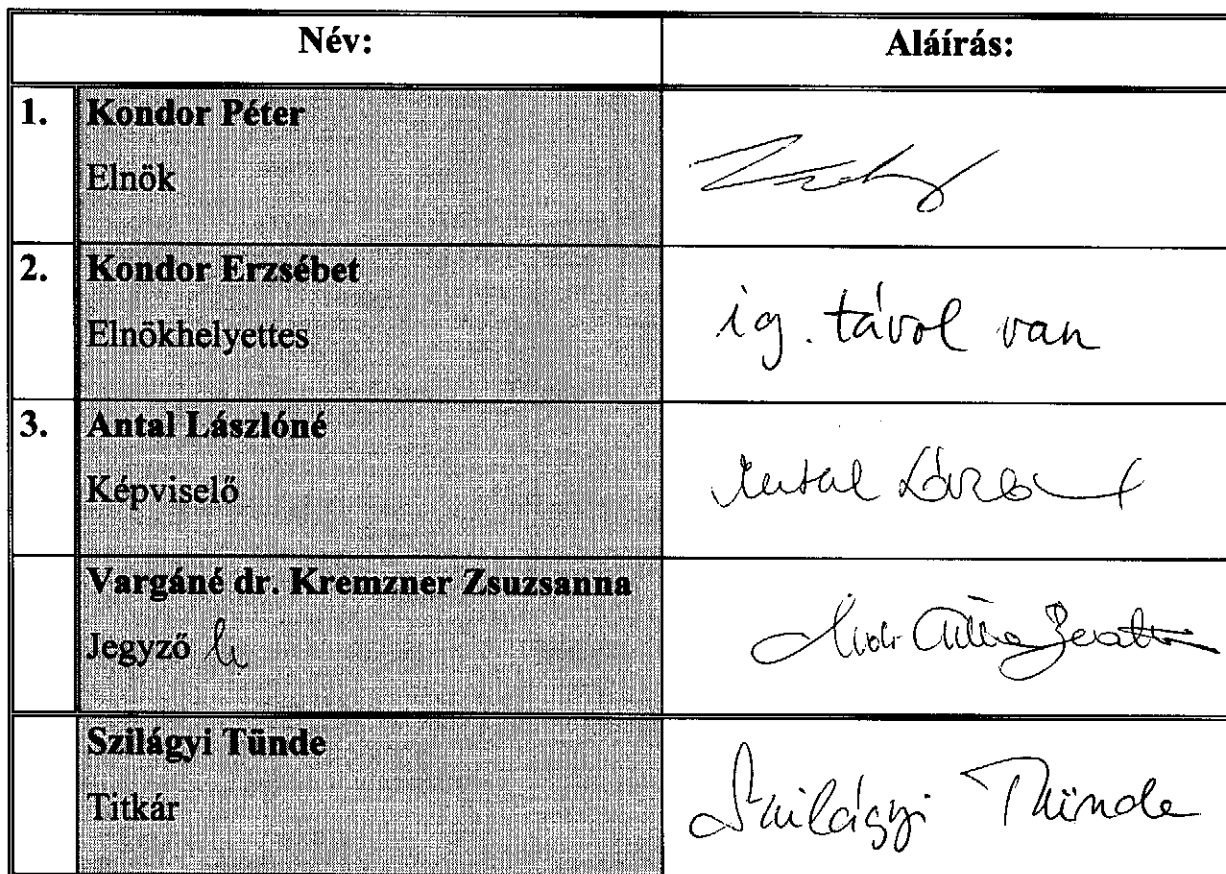 Név: Aláírás:
1. Kondor Péter
Elnök
2. Kondor Erzsébet
Elnökhelyettes
ig. távol van
3. Antal Lászlóné
Képviselő
Antal László
Vargáné dr. Kremzner Zsuzsanna
Jegyző h
Szilágyi Tünde
Titkár
Szilágyi Tünde